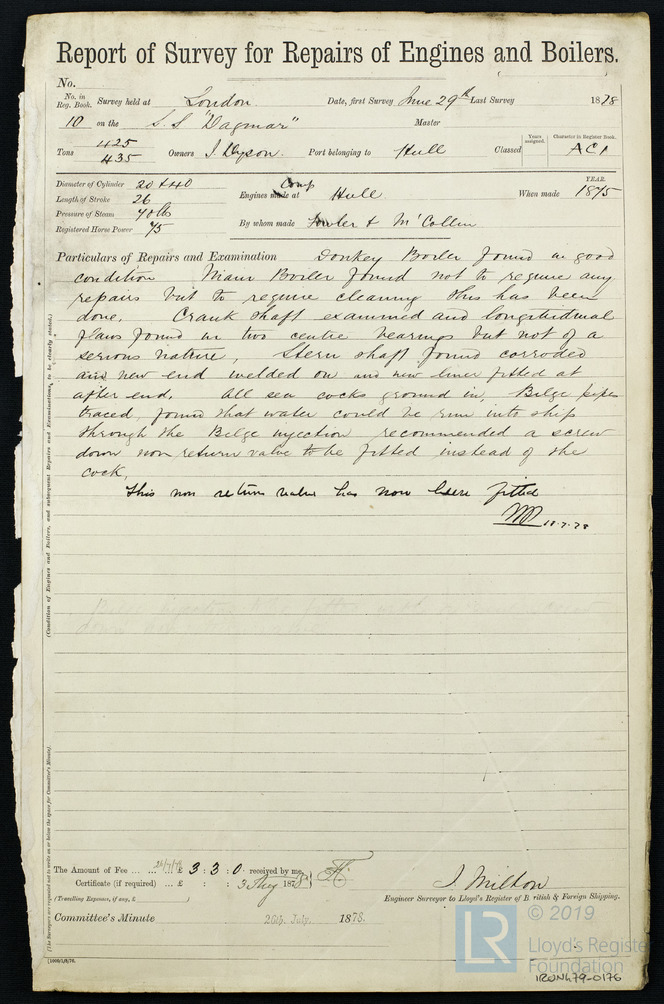 Report of Survey for Repairs of Engines and Boilers.
No.
No. in Reg. Book. Survey held at London Date, first Survey June 29th Last Survey 1878
10 on the S.S "Dagmar" Master
Tons 425 435 Owners J. Dyson. Port belonging to Hull Classed Years assigned. Character in Register Book. AC1
Diameter of Cylinder 20 & 40
Length of Stroke 26
Pressure of Steam 70 lb
Registered Horse Power 75
Comp
Engines made at Hull When made YEAR. 1875
By whom made Fowler & McCollin
Particulars of Repairs and Examination Donkey Boiler found in good
condition Main Boiler found not to require any
repairs but to require cleaning this has been
done. Crank shaft examined and longitudinal
flaws found in two centre bearings but not of a
serious nature, Stern shaft found corroded
and new end welded on and new liner fitted at
after end. All sea cocks ground in, Bilge pipes
traced, found that water could be run into ship
through the Bilge injection recommended a screw
down non return valve to be fitted instead of the
cock,
This non return valve has now been fitted
18.7.78
(Condition of Engines and Boilers, and subsequent Repairs and Examinations, to be clearly stated.)
(The Surveyors are requested not to write on or below the space for Committee's Minute).
The Amount of Fee ... £ 3 : 3 : 0 received by me,
Certificate (if required) ... £ : : 3 Aug 1878
(Travelling Expenses, if any, £ )
J. Milton
Engineer Surveyor to Lloyd's Register of British & Foreign Shipping.
Committee's Minute 26th July. 1878.
LR
© 2019
Lloyd's Register
Foundation
IRON479-0176